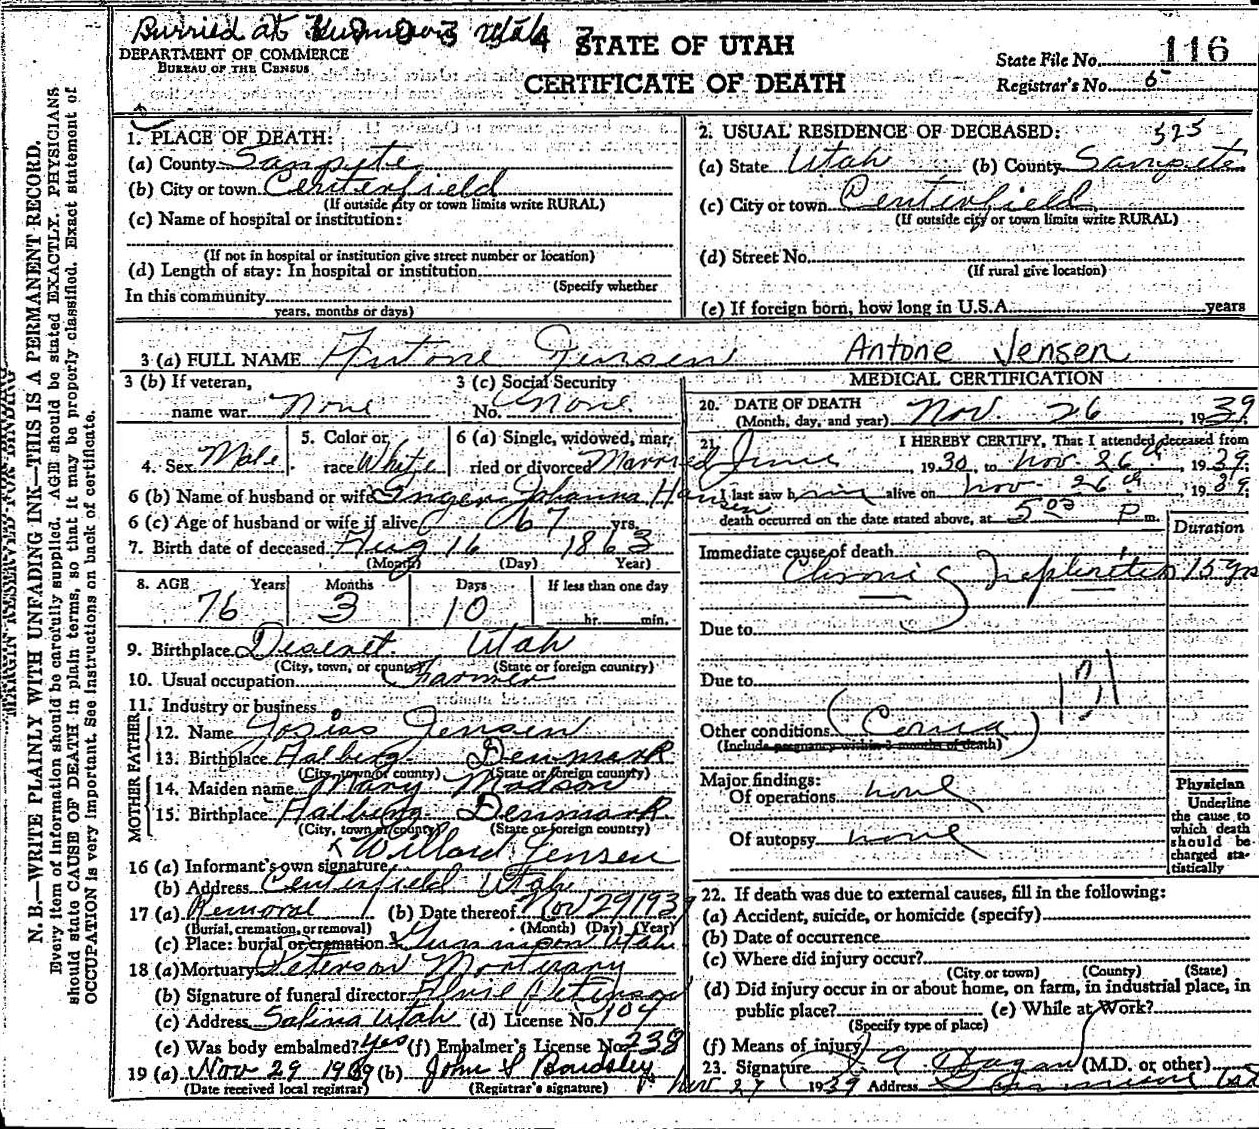 Burried at Gunnison Utah
DEPARTMENT OF COMMERCE
BUREAU OF THE CENSUS
STATE OF UTAH
CERTIFICATE OF DEATH
State File No. 116
Registrar's No. 6
MARGIN RESERVED FOR BINDING
N. B.—WRITE PLAINLY WITH UNFADING INK—THIS IS A PERMANENT RECORD.
Every item of information should be carefully supplied. AGE should be stated EXACTLY. PHYSICIANS
should state CAUSE OF DEATH in plain terms, so that it may be properly classified. Exact statement of
OCCUPATION is very important. See instructions on back of certificate.
1. PLACE OF DEATH:
(a) County Sanpete
(b) City or town Centerfield
(If outside city or town limits write RURAL)
(c) Name of hospital or institution:
(If not in hospital or institution give street number or location)
(d) Length of stay: In hospital or institution
(Specify whether
In this community
years, months or days)
2. USUAL RESIDENCE OF DECEASED: 525
(a) State Utah (b) County Sanpete
(c) City or town Centerfield
(If outside city or town limits write RURAL)
(d) Street No.
(If rural give location)
(e) If foreign born, how long in U.S.A. years
3 (a) FULL NAME Antone Jensen Antone Jensen
3 (b) If veteran,
name war None
3 (c) Social Security
No. None
4. Sex Male
5. Color or
race White
6 (a) Single, widowed, mar-
ried or divorced Married
6 (b) Name of husband or wife Ingera Johanna Hansen
6 (c) Age of husband or wife if alive 67 yrs.
7. Birth date of deceased Aug 16 1863
(Month) (Day) Year)
8. AGE Years Months Days If less than one day
76 3 10 hr. min.
9. Birthplace Deseret Utah
(City, town, or county) (State or foreign country)
10. Usual occupation Farmer
11. Industry or business
FATHER
12. Name Josias Jensen
13. Birthplace Aalberg Denmark
(City, town or county) (State or foreign country)
MOTHER
14. Maiden name Mary Madson
15. Birthplace Aalberg Denmark
(City, town or county) (State or foreign country)
16 (a) Informant's own signature Willard Jensen
(b) Address Centerfield Utah
17 (a) Removal (b) Date thereof Nov 29 1939
(Burial, cremation, or removal) (Month) (Day) (Year)
(c) Place: burial or cremation Gunnison Utah
18 (a) Mortuary Peterson Mortuary
(b) Signature of funeral director Peterson
(c) Address Salina Utah (d) License No. 104
(e) Was body embalmed? yes (f) Embalmer's License No. 238
19 (a) Nov 29 1939 (b) John S Bardsley
(Date received local registrar) (Registrar's signature)
MEDICAL CERTIFICATION
20. DATE OF DEATH
(Month, day, and year) Nov. 26, 1939
21. I HEREBY CERTIFY, That I attended deceased from
June, 1930, to Nov. 26th, 1939
I last saw him alive on Nov. 26th, 1939
death occurred on the date stated above, at 5 00 P m.
Duration
Immediate cause of death
Chronic Nephritis 15 yrs
Due to
Due to
131
Other conditions (Coma)
(Include pregnancy within 3 months of death)
Major findings:
Of operations none
Of autopsy none
Physician
Underline
the cause to
which death
should be
charged sta-
tistically
22. If death was due to external causes, fill in the following:
(a) Accident, suicide, or homicide (specify)
(b) Date of occurrence
(c) Where did injury occur?
(City or town) (County) (State)
(d) Did injury occur in or about home, on farm, in industrial place, in
public place? (e) While at Work?
(Specify type of place)
(f) Means of injury
23. Signature Hagan (M.D. or other)
Nov 27 1939 Address Gunnison Utah